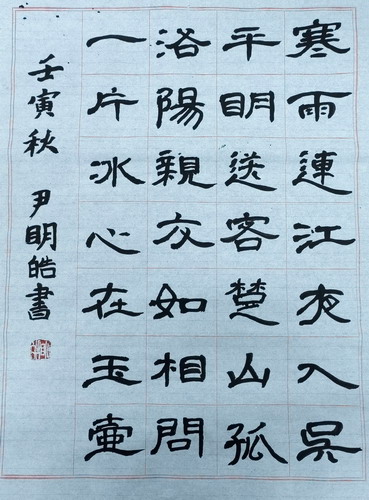 寒雨連江夜入吳
平明送客楚山孤
洛陽親友如相問
一片冰心在玉壺
壬寅秋 尹明皓書